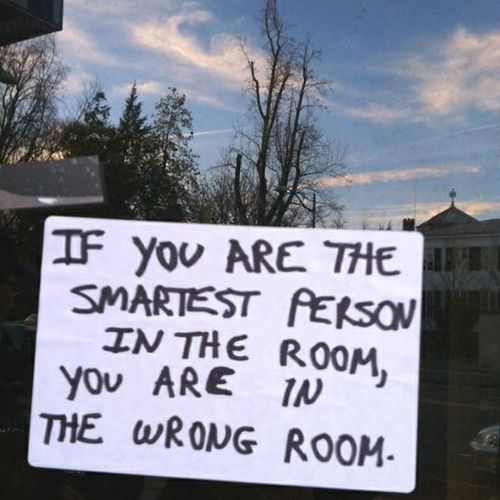 IF YOU ARE THE
SMARTEST PERSON
IN THE ROOM,
YOU ARE IN
THE WRONG ROOM.